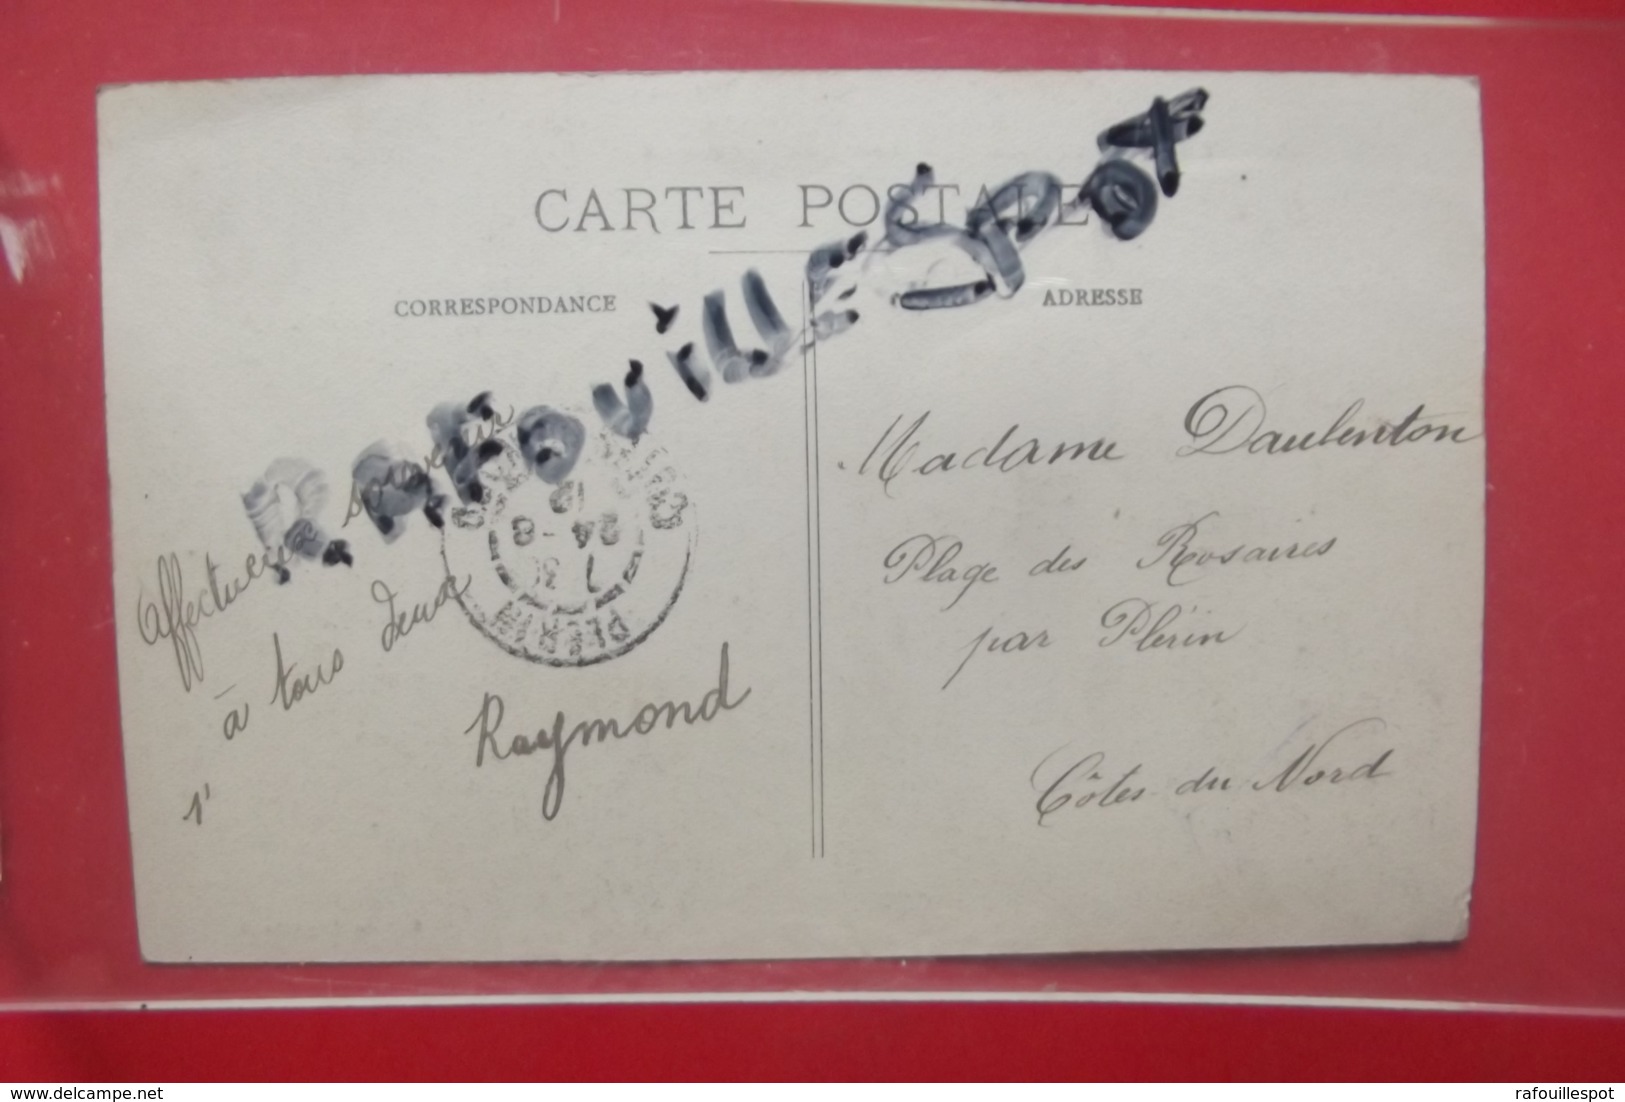 CARTE POSTALE
CORRESPONDANCE
ADRESSE
RAFouillESPOT
Affectueux souvenir
à tous deux
Raymond
Madame Daubenton
Plage des Rosaires
par Plérin
Côtes du Nord
24 - 8
PLERIN
delcampe.net
rafouillespot